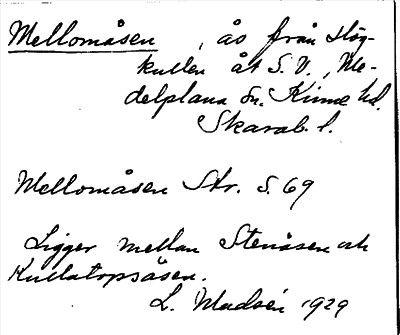 Mellomåsen, ås från Hög-
kullen åt S.V., Me-
delplana sn. Kinne hd.
Skarab. l.
Mellomåsen Str. S. 69
Ligger mellan Stenåsen och
Kullatopsåsen.
L. Madsén 1929